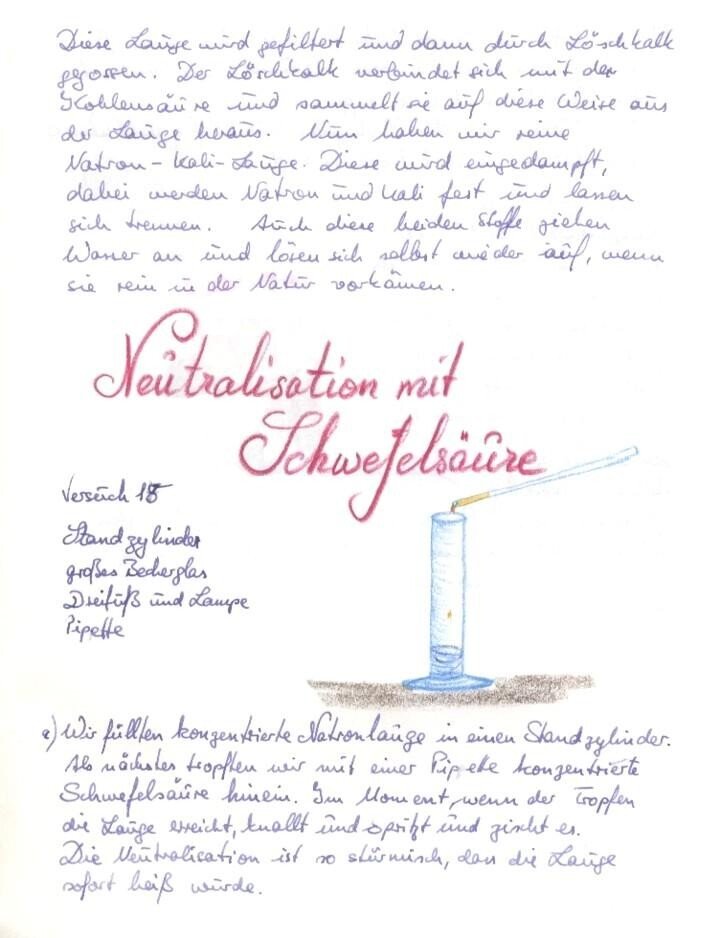 Diese Lauge wird gefiltert und dann durch Löschkalk
gegossen. Der Löschkalk verbindet sich mit der
Kohlensäure und sammelt sie auf diese Weise aus
der Lauge heraus. Nun haben wir reine
Natron-Kali-Lauge. Diese wird eingedampft,
dabei werden Natron und Kali fest und lassen
sich trennen. Auch diese beiden Stoffe ziehen
Wasser an und lösen sich selbst wieder auf, wenn
sie rein in der Natur vorkämen.
Neutralisation mit
Schwefelsäure
Versuch 18
Standzylinder
großes Becherglas
Dreifuß und Lampe
Pipette
a) Wir füllten konzentrierte Natronlauge in einen Standzylinder.
Als nächstes tropften wir mit einer Pipette konzentrierte
Schwefelsäure hinein. Im Moment, wenn der Tropfen
die Lauge erreicht, knallt und spritzt und zischt es.
Die Neutralisation ist so stürmisch, dass die Lauge
sofort heiß wurde.